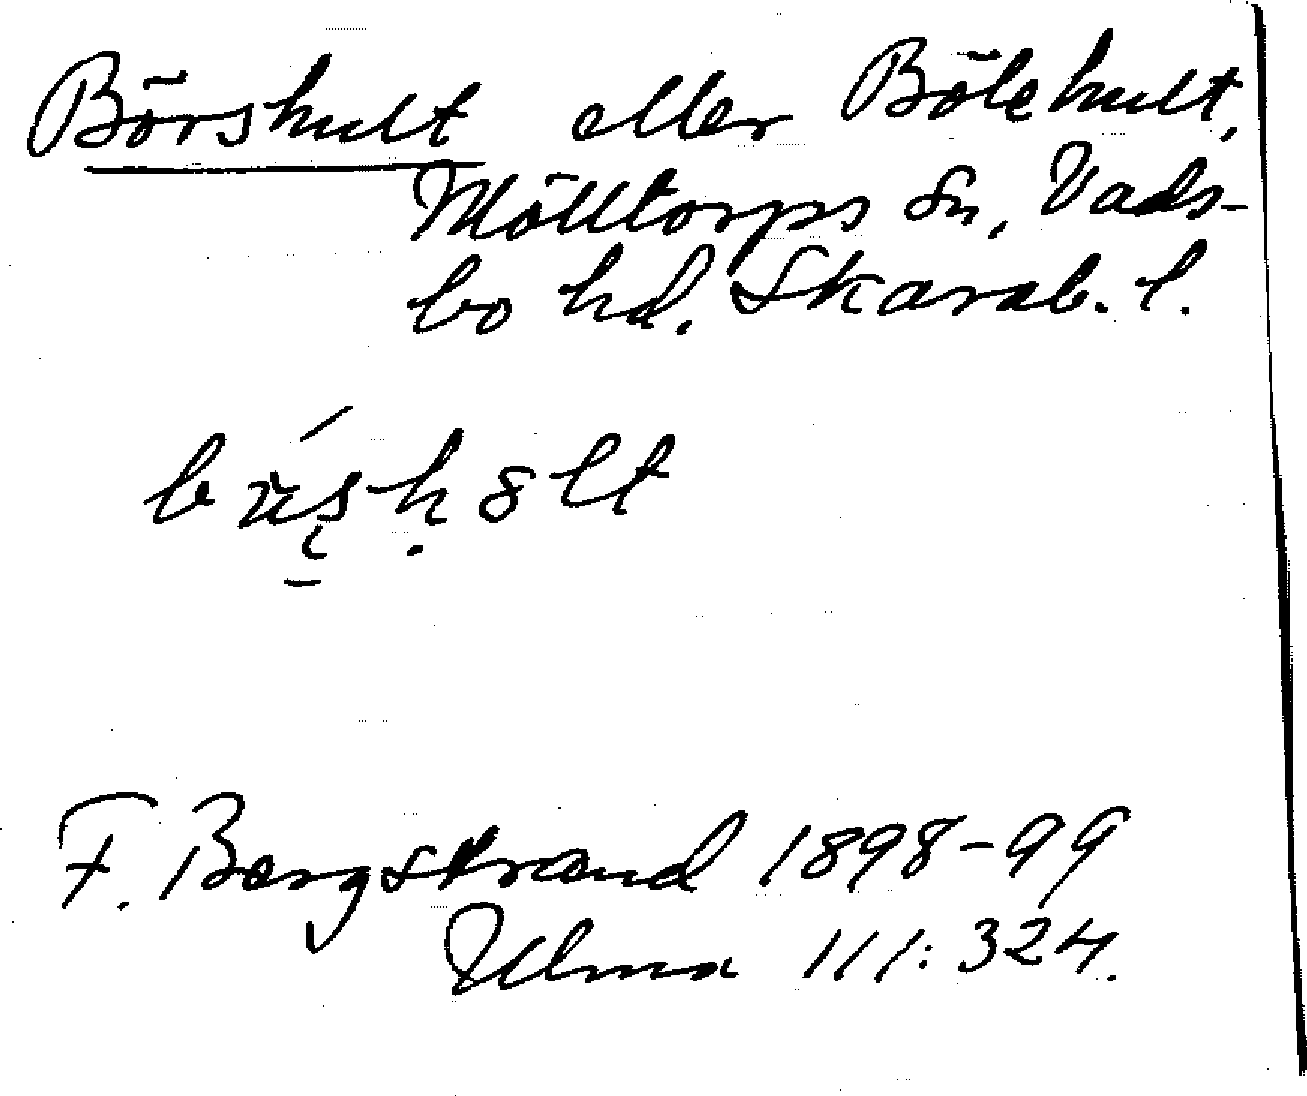 Börshult eller Bölehult,
Mölltorps sn, Vads-
bo hd. Skarab. l.
F. Bergstrand 1898-99
Ulma 111:324.